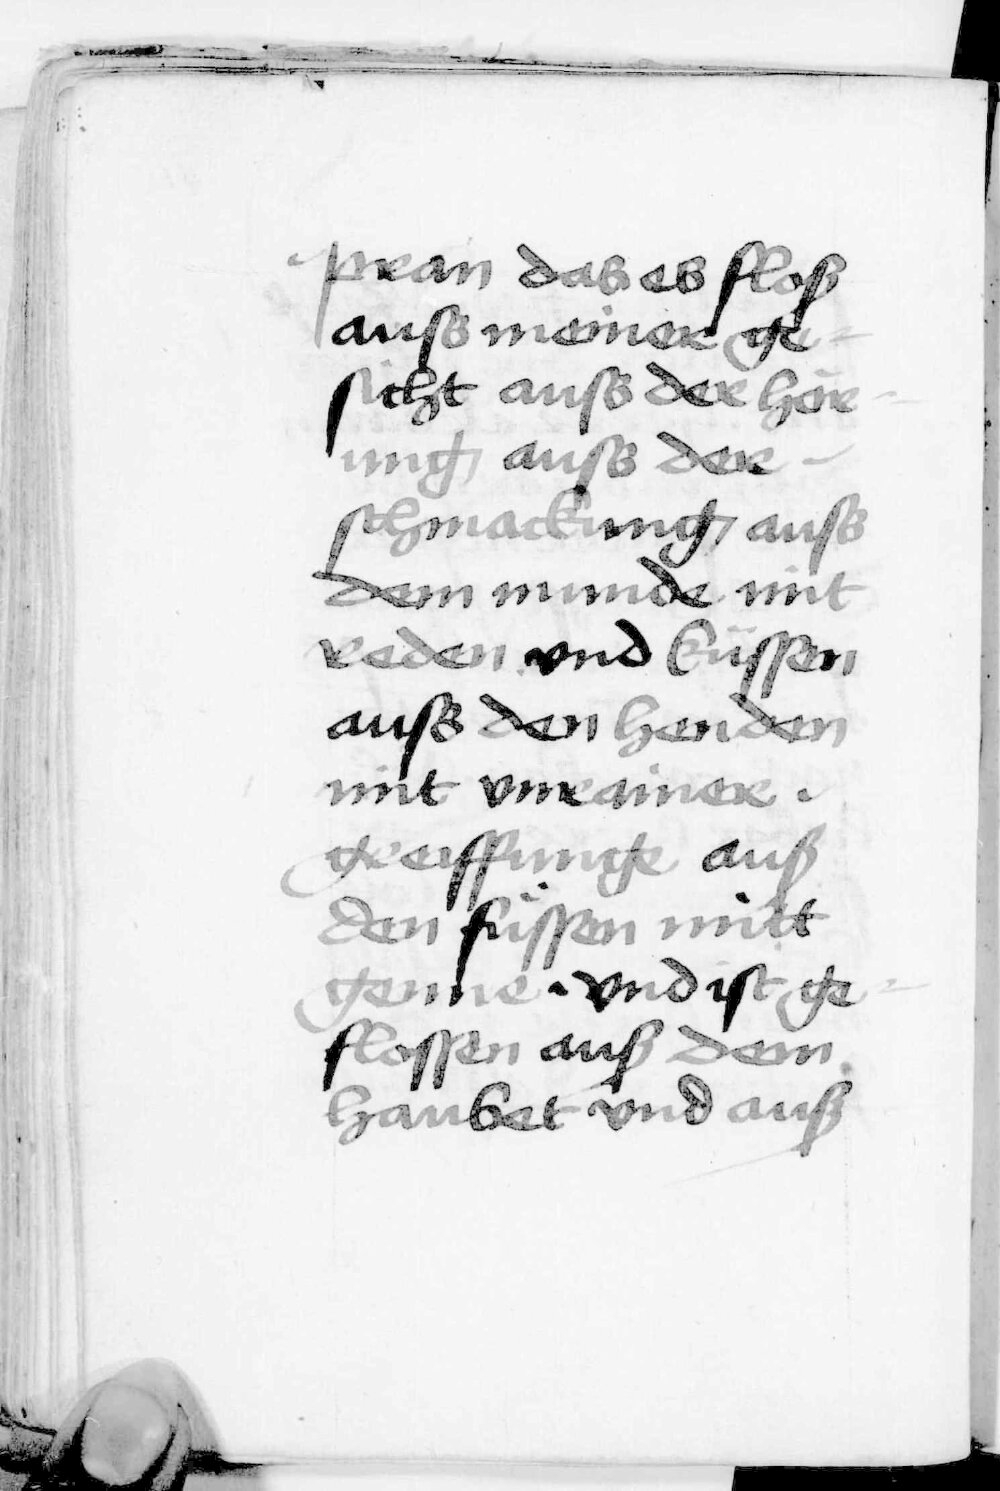 pran das es floß
auss meiner ge-
sicht auss der hör-
ung auss der
schmackung auss
dem munde mit
reden vnd küssen
auss den henden
mit vnrainer
greiffunge auß
den füssen mitt
genne · vnd ist ge-
flossen auß dem
haubet vnd auß